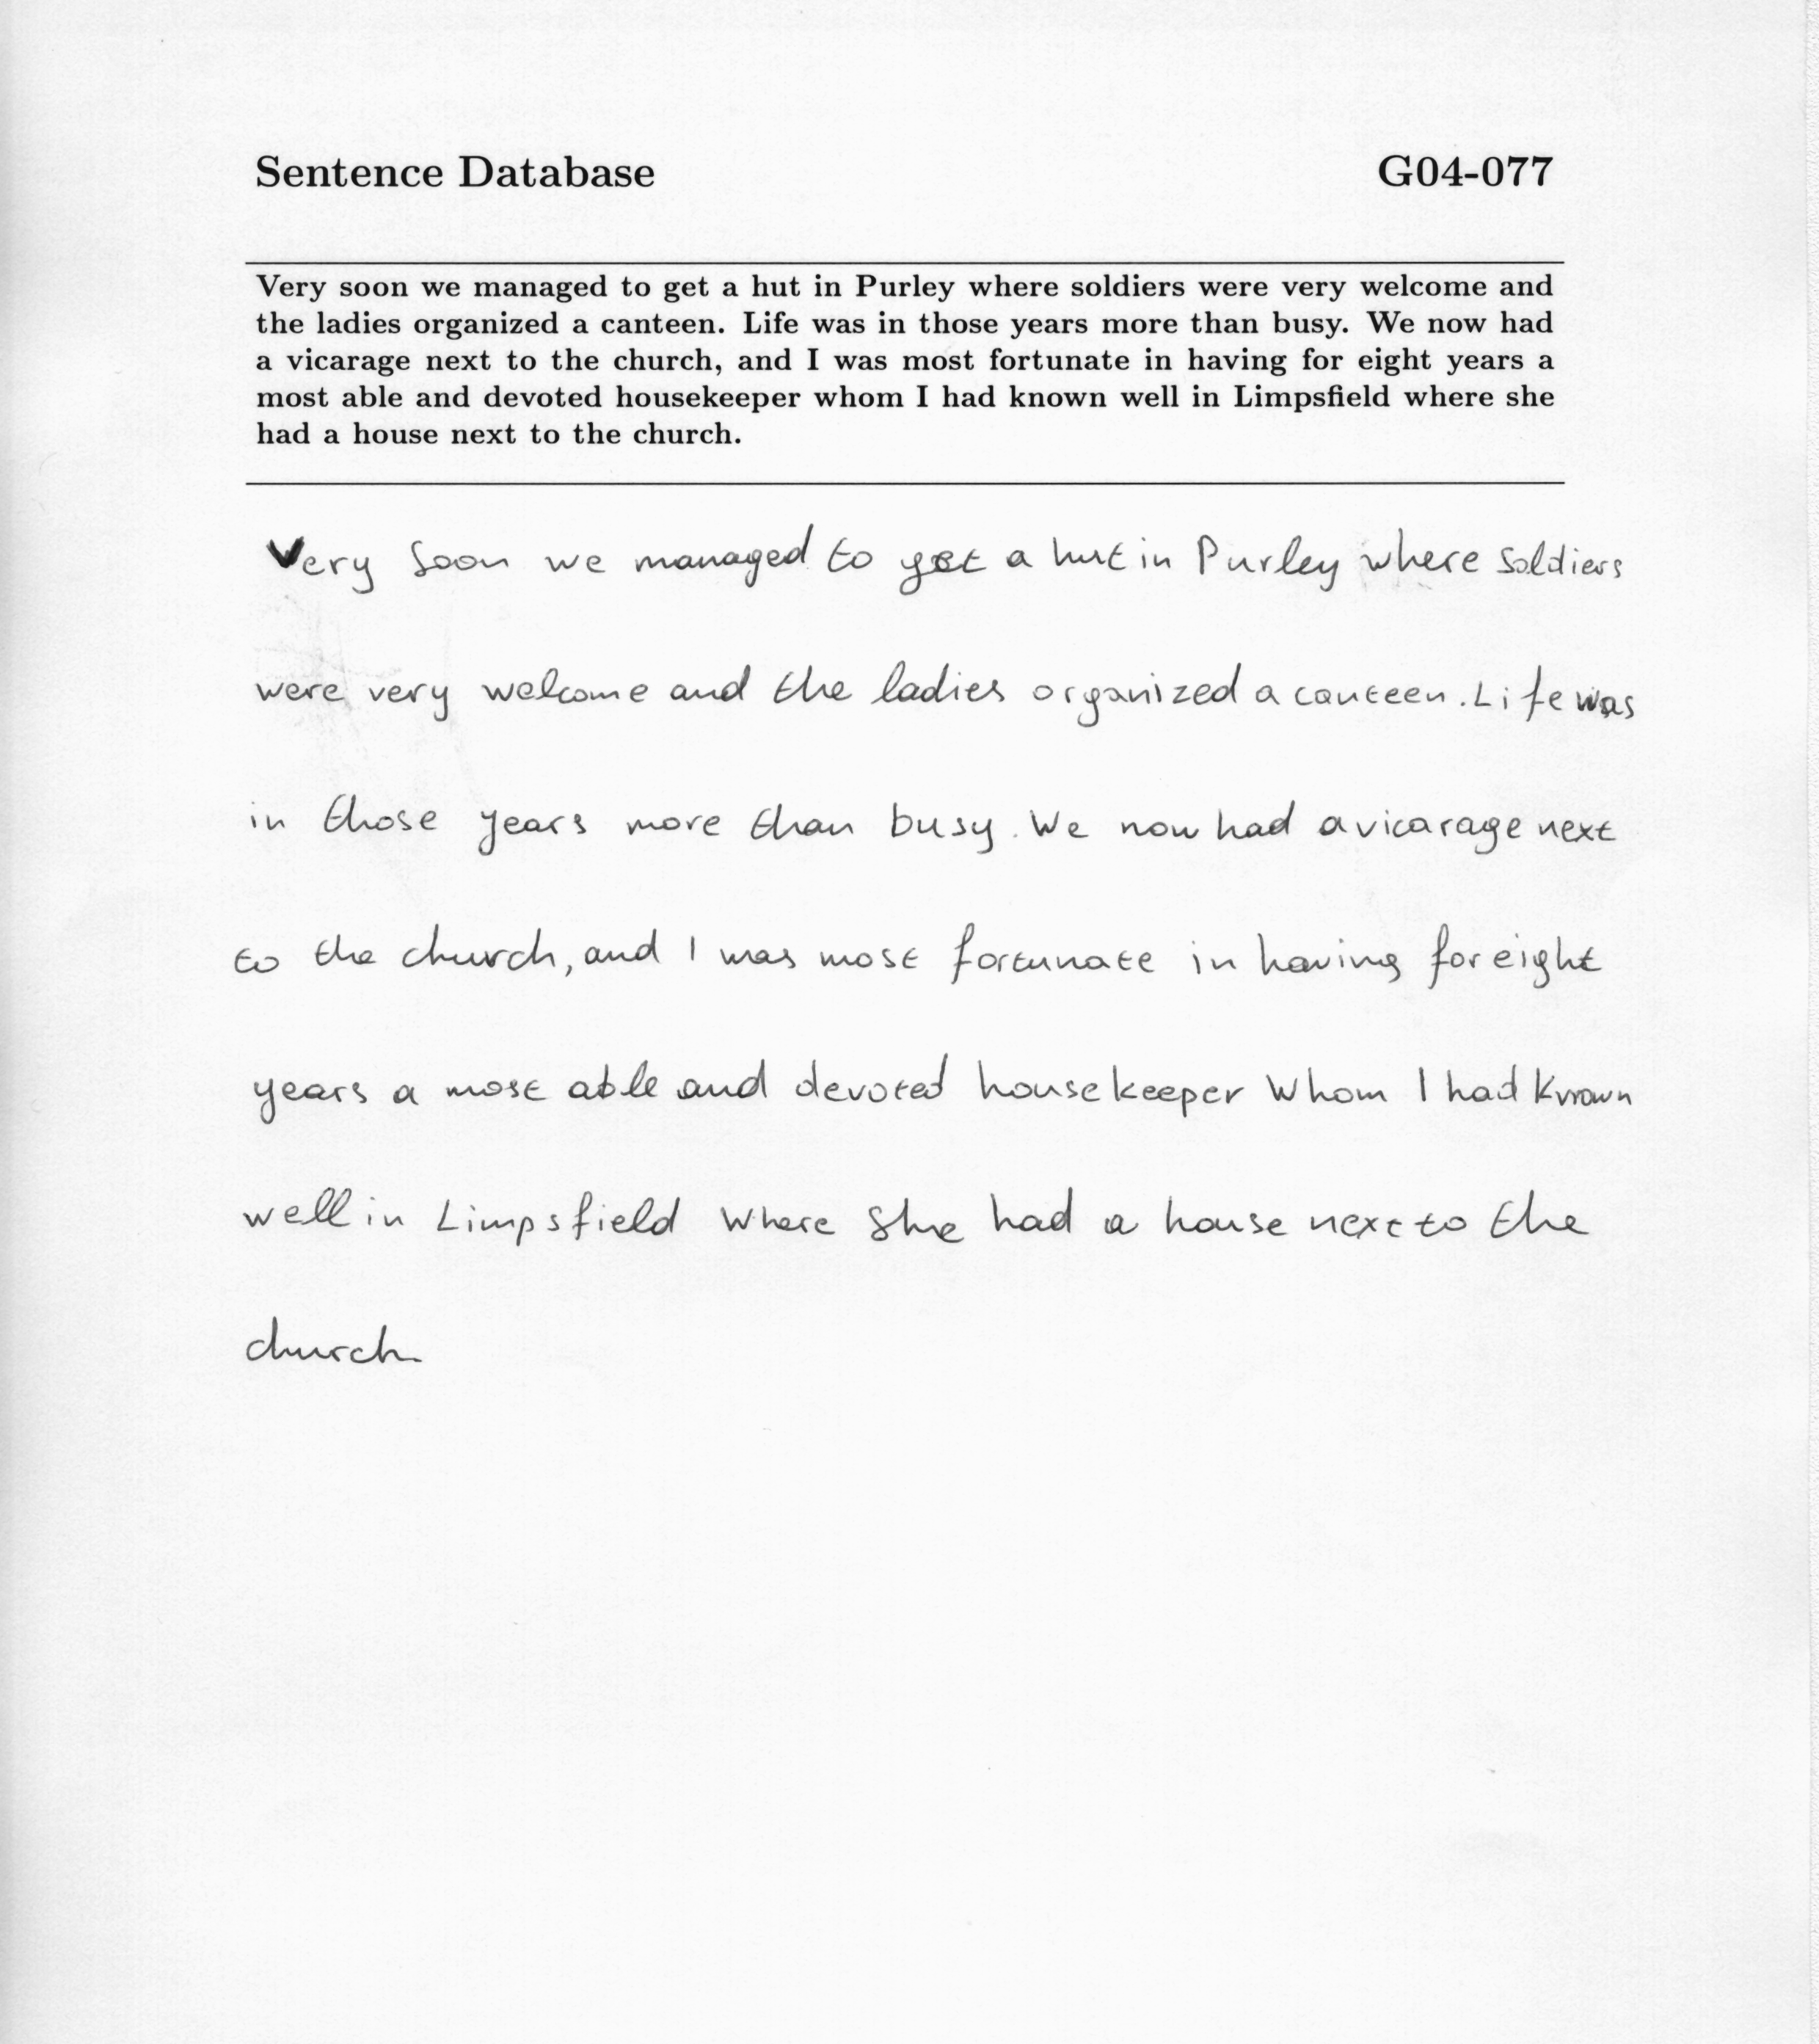 Sentence Database G04-077
Very soon we managed to get a hut in Purley where soldiers were very welcome and
the ladies organized a canteen. Life was in those years more than busy. We now had
a vicarage next to the church, and I was most fortunate in having for eight years a
most able and devoted housekeeper whom I had known well in Limpsfield where she
had a house next to the church.
Very soon we managed to get a hut in Purley where soldiers
were very welcome and the ladies organized a canteen. Life was
in those years more than busy. We now had a vicarage next
to the church, and I was most fortunate in having for eight
years a most able and devoted housekeeper whom I had known
well in Limpsfield where she had a house next to the
church.